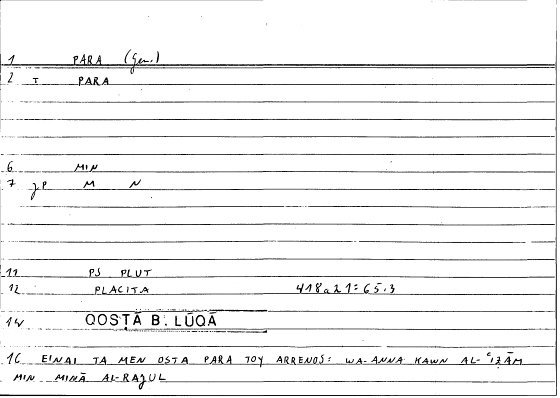 1 PARA (Gen.)
2 T PARA
6 MIN
7 M N
11 PS PLUT
12 PLACITA 418a21=65.3
14 QOSṬĀ B. LŪQĀ
16 EINAI TA MEN OSTA PARA TOY ARRENOS: WA-ANNA KAWN AL-ʿIẒĀM
MIN MINĀ AL-RAJUL